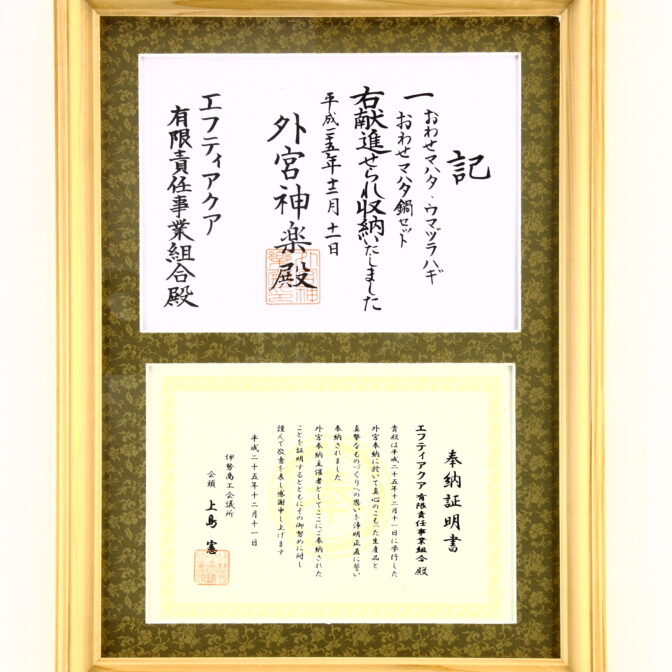 記
一 おわせマハタ、ウマヅラハギ
おわせマハタ鍋セット
右献進せられ収納いたしました
平成二十五年十二月十一日
外宮神楽殿
エフティアクア
有限責任事業組合殿
奉納証明書
エフティアクア 有限責任事業組合 殿
貴殿は平成二十五年十二月十一日に挙行した
外宮奉納に於いて真心のこもった生産品と
真摯なものづくりへの思いを浄明正直に誓い
奉納されました
外宮奉納主催者としてここにご奉納された
ことを証明するとともにその御努めに対し
謹んで敬意を表し感謝申し上げます
平成二十五年十二月十一日
伊勢商工会議所
会頭 上島 憲